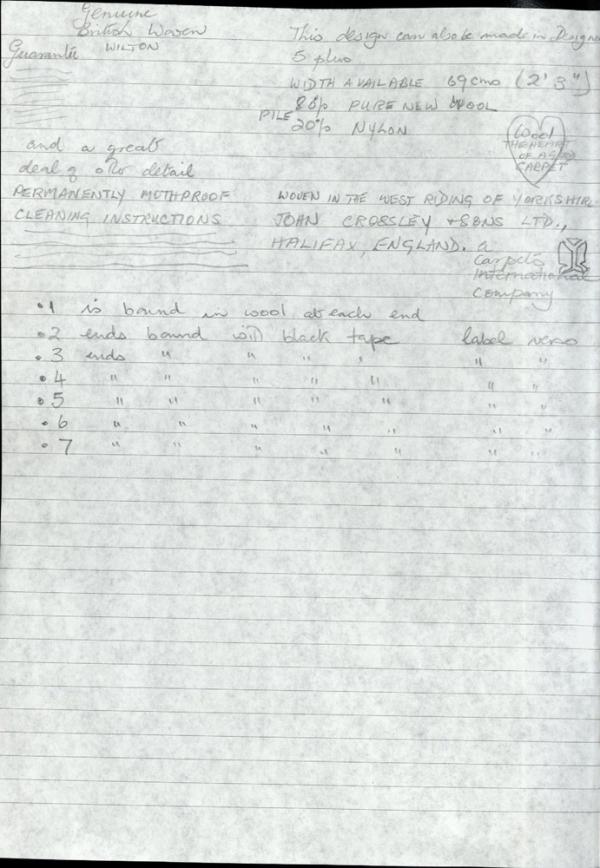 Genuine
British Woven
WILTON
Guarantee
This design can also be made in Designe
5 plus
WIDTH AVAILABLE 69cms (2' 3")
PILE 80% PURE NEW WOOL
20% NYLON
Wool
THE HEART
OF A GOOD
CARPET
and a great
deal of other detail
PERMANENTLY MOTHPROOF
CLEANING INSTRUCTIONS
WOVEN IN THE WEST RIDING OF YORKSHIRE
JOHN CROSSLEY + SONS LTD.,
HALIFAX, ENGLAND. a
Carpets
International
Company
•1 is bound in wool at each end
•2 ends bound with black tape label verso
•3 ends " " " " " "
•4 " " " " " " "
•5 " " " " " " "
•6 " " " " " " "
•7 " " " " " " "